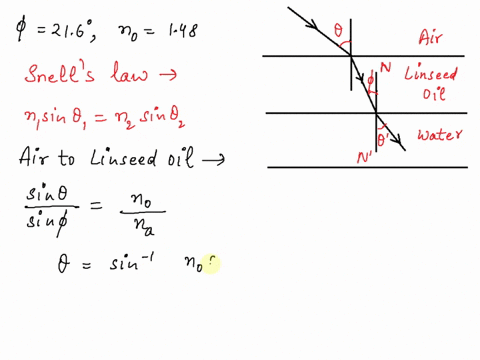 ϕ = 21.6°, n₀ = 1.48
Snell's law →
n₁sinθ₁ = n₂ sinθ₂
Air to Linseed oil →
sinθ / sinϕ = n₀ / nₐ
θ = sin⁻¹ n₀
θ
Air
N
ϕ
Linseed
oil
θ'
water
N'